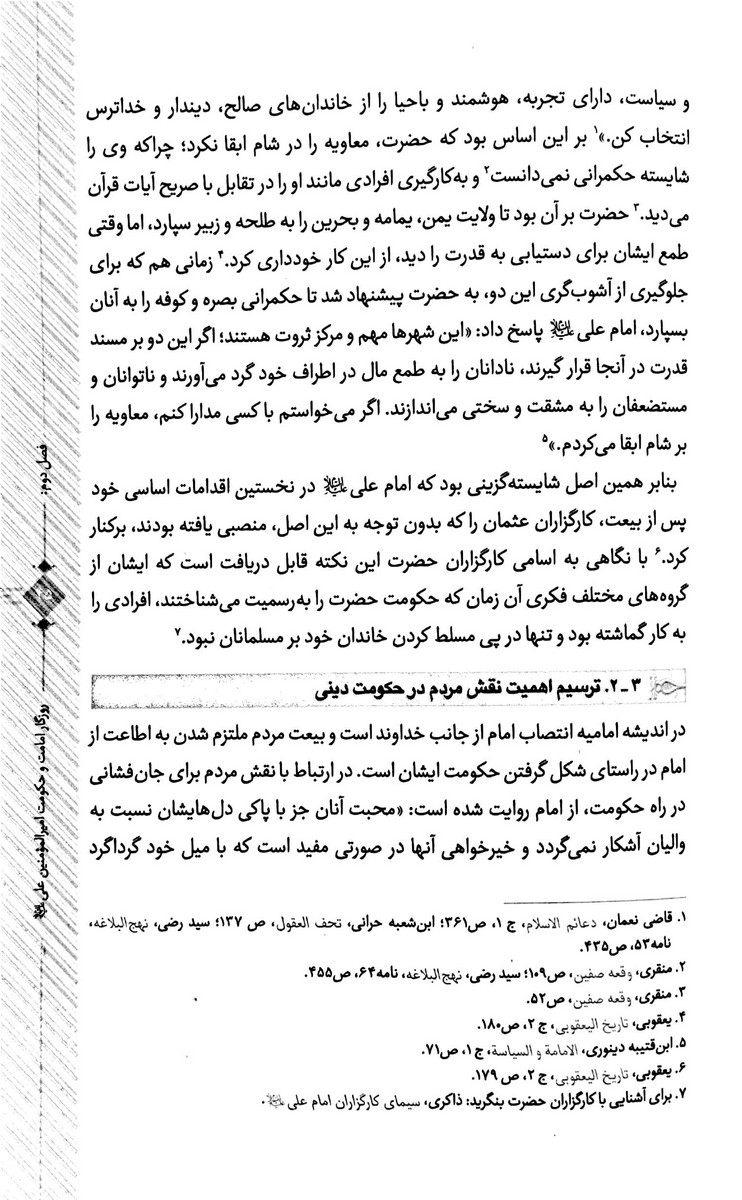 و سیاست، دارای تجربه، هوشمند و باحیا را از خاندان‌های صالح، دیندار و خداترس
انتخاب کن.»۱ بر این اساس بود که حضرت، معاویه را در شام ابقا نکرد؛ چراکه وی را
شایسته حکمرانی نمی‌دانست۲ و به‌کارگیری افرادی مانند او را در تقابل با صریح آیات قرآن
می‌دید.۳ حضرت بر آن بود تا ولایت یمن، یمامه و بحرین را به طلحه و زبیر سپارد، اما وقتی
طمع ایشان برای دستیابی به قدرت را دید، از این کار خودداری کرد.۴ زمانی هم که برای
جلوگیری از آشوب‌گری این دو، به حضرت پیشنهاد شد تا حکمرانی بصره و کوفه را به آنان
بسپارد، امام علی علیه‌السلام پاسخ داد: «این شهرها مهم و مرکز ثروت هستند؛ اگر این دو بر مسند
قدرت در آنجا قرار گیرند، نادانان را به طمع مال در اطراف خود گرد می‌آورند و ناتوانان و
مستضعفان را به مشقت و سختی می‌اندازند. اگر می‌خواستم با کسی مدارا کنم، معاویه را
بر شام ابقا می‌کردم.»۵
بنابر همین اصل شایسته‌گزینی بود که امام علی علیه‌السلام در نخستین اقدامات اساسی خود
پس از بیعت، کارگزاران عثمان را که بدون توجه به این اصل، منصبی یافته بودند، برکنار
کرد.۶ با نگاهی به اسامی کارگزاران حضرت این نکته قابل دریافت است که ایشان از
گروه‌های مختلف فکری آن زمان که حکومت حضرت را به‌رسمیت می‌شناختند، افرادی را
به کار گماشته بود و تنها در پی مسلط کردن خاندان خود بر مسلمانان نبود.۷
۳-۲. ترسیم اهمیت نقش مردم در حکومت دینی
در اندیشه امامیه انتصاب امام از جانب خداوند است و بیعت مردم ملتزم شدن به اطاعت از
امام در راستای شکل گرفتن حکومت ایشان است. در ارتباط با نقش مردم برای جان‌فشانی
در راه حکومت، از امام روایت شده است: «محبت آنان جز با پاکی دل‌هایشان نسبت به
والیان آشکار نمی‌گردد و خیرخواهی آنها در صورتی مفید است که با میل خود گرداگرد
۱. قاضی نعمان، دعائم الاسلام، ج ۱، ص۳۶۱؛ ابن‌شعبه حرانی، تحف العقول، ص ۱۳۷؛ سید رضی، نهج‌البلاغه،
نامه۵۳، ص۴۳۵.
۲. منقری، وقعه صفین، ص۱۰۹؛ سید رضی، نهج‌البلاغه، نامه۶۴، ص۴۵۵.
۳. منقری، وقعه صفین، ص۵۲.
۴. یعقوبی، تاریخ الیعقوبی، ج ۲، ص۱۸۰.
۵. ابن‌قتیبه دینوری، الامامة و السیاسة، ج ۱، ص۷۱.
۶. یعقوبی، تاریخ الیعقوبی، ج ۲، ص ۱۷۹.
۷. برای آشنایی با کارگزاران حضرت بنگرید: ذاکری، سیمای کارگزاران امام علی علیه‌السلام.
فصل دوم:
روزگار امامت و حکومت امیرالمؤمنین علی علیه‌السلام